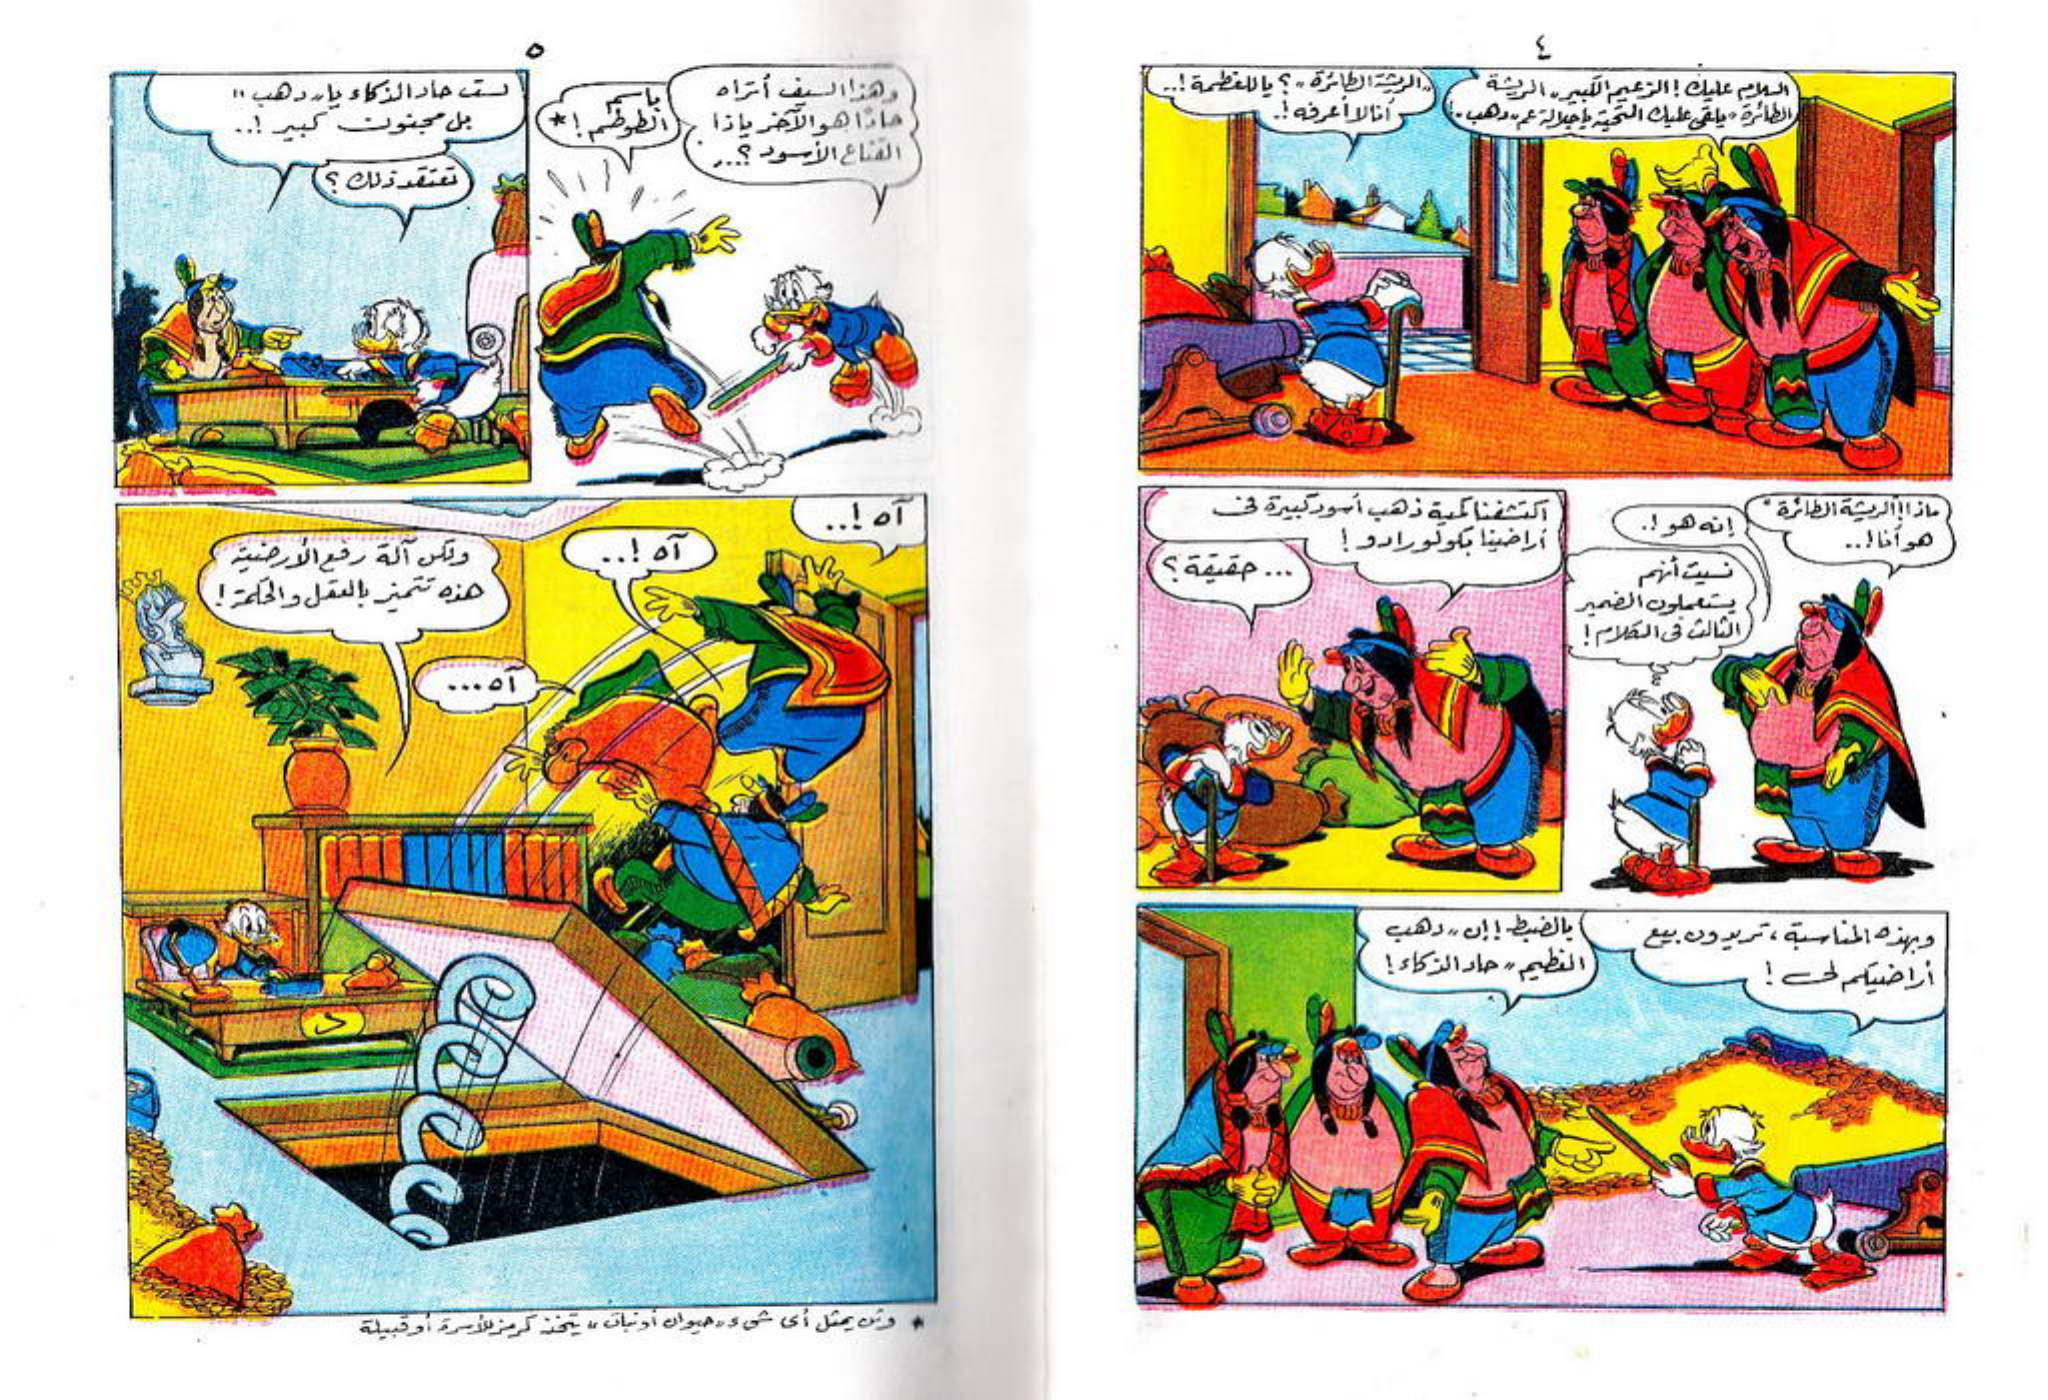 ٤
السلام عليك! الزعيم الكبير "الريشة
الطائرة" يلقى عليك التحية ياجلالة عم "دهب"!
"الريشة الطائرة"؟ ياللعظمة!..
أنا لا أعرفه!.
ماذا! الريشة الطائرة"
هو أنا!..
إنه هو!.
نسيت أنهم
يستعملون الضمير
الثالث فى الكلام!
اكتشفنا كمية ذهب أسود كبيرة فى
أراضينا بكولورادو!
... حقيقة؟
وبهذه المناسبة، تريدون بيع
أراضيكم لى!
بالضبط! إن "دهب
العظيم" حاد الذكاء!
٥
وهذا السيف أتراه
حادًا هو الآخر ياذا
القناع الأسود؟...
باسم
الطوطم!*
لست حاد الذكاء يا "دهب"
بل مجنون كبير!..
تعتقد ذلك؟
آه!..
آه!..
آه...
ولكن آلة رفع الأرضية
هذه تتميز بالعقل والحكمة!
د
* وثن يمثل أى شىء "حيوان أونبات" يتخذ كرمز للأسرة أو قبيلة